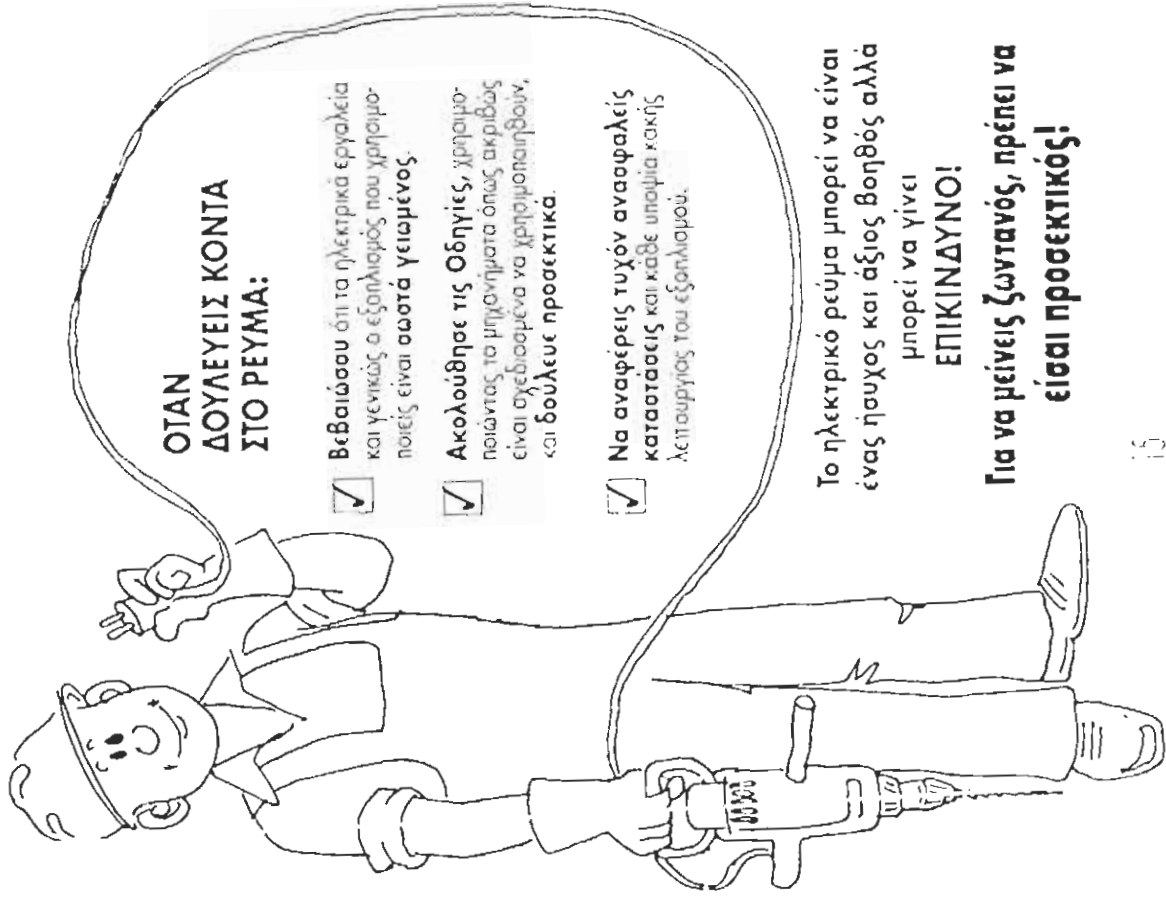 ΟΤΑΝ
ΔΟΥΛΕΥΕΙΣ ΚΟΝΤΑ
ΣΤΟ ΡΕΥΜΑ:
Βεβαιώσου ότι τα ηλεκτρικά εργαλεία
και γενικώς ο εξοπλισμός που χρησιμο-
ποιείς είναι σωστά γειωμένος.
Ακολούθησε τις Οδηγίες, χρησιμο-
ποιώντας τα μηχανήματα όπως ακριβώς
είναι σχεδιασμένα να χρησιμοποιηθούν,
και δούλευε προσεκτικά.
Να αναφέρεις τυχόν ανασφαλείς
καταστάσεις και κάθε υποψία κακής
λειτουργίας του εξοπλισμού.
Το ηλεκτρικό ρεύμα μπορεί να είναι
ένας ήσυχος και άξιος βοηθός αλλά
μπορεί να γίνει
ΕΠΙΚΙΝΔΥΝΟ!
Για να μείνεις ζωντανός, πρέπει να
είσαι προσεκτικός!